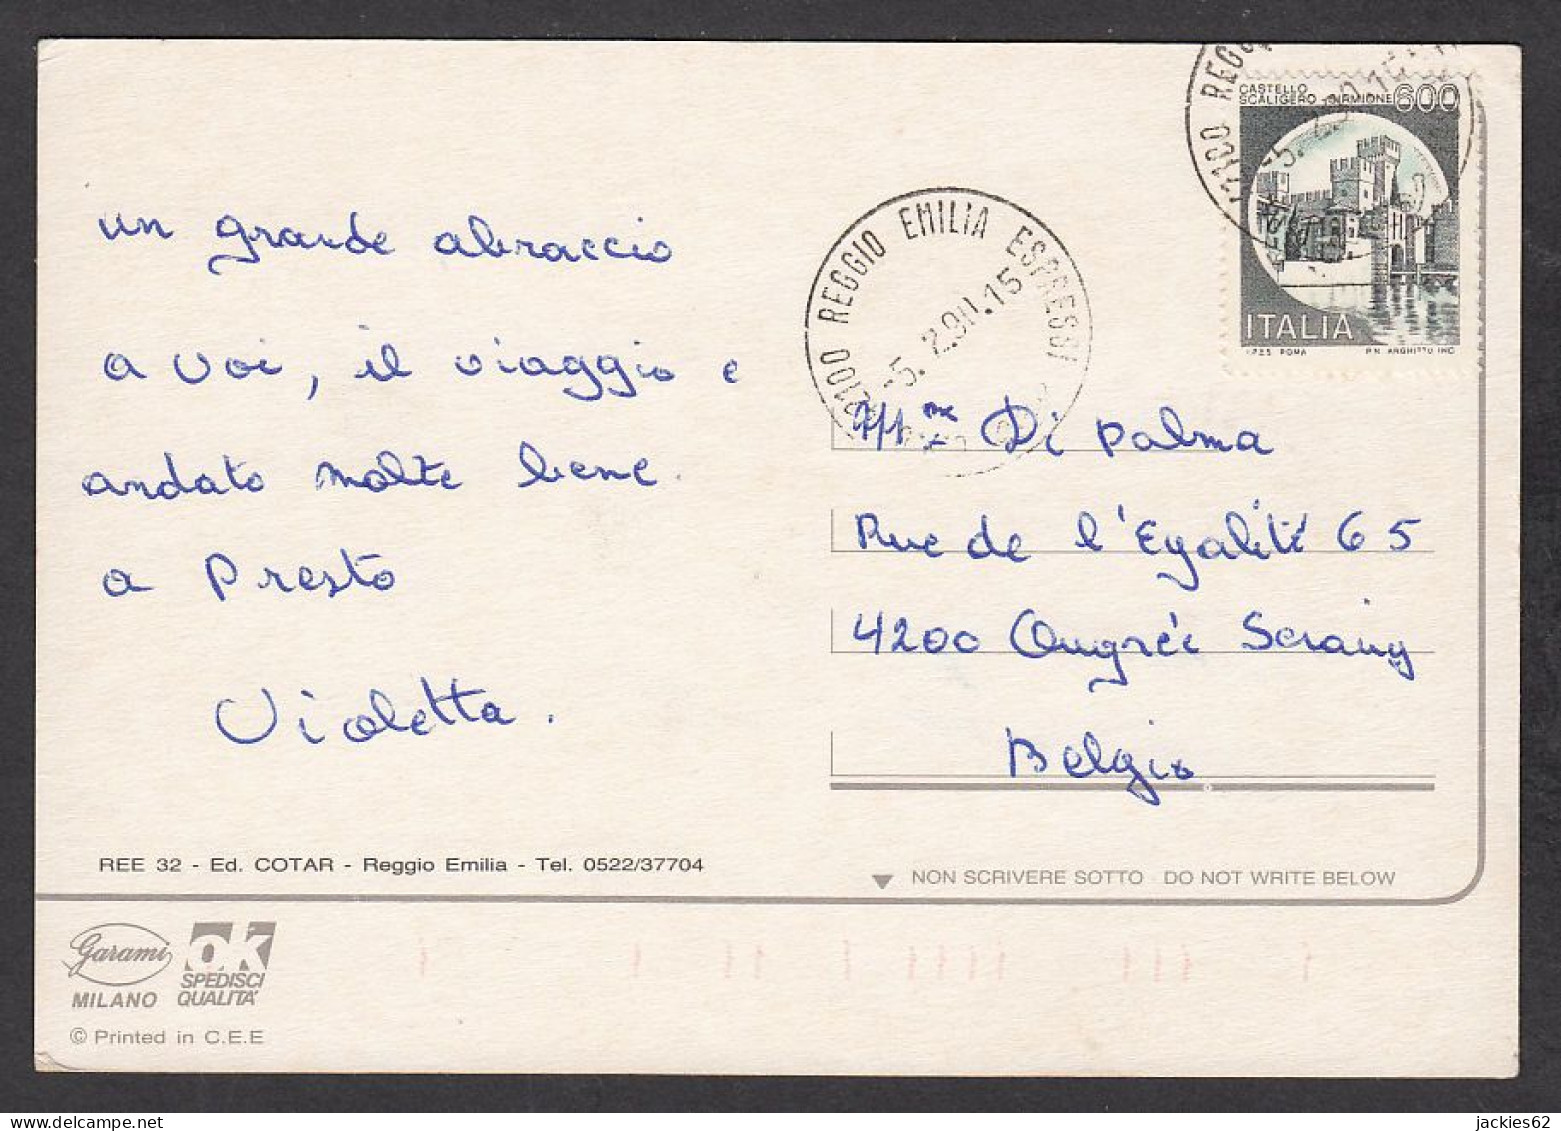 un grande abraccio
a voi, il viaggio e
andato molte bene.
a Presto
Violetta.
REE 32 - Ed. COTAR - Reggio Emilia - Tel. 0522/37704
Garami
MILANO
OK
SPEDISCI
QUALITA'
© Printed in C.E.E
42100 REGGIO EMILIA ESPRESSI
-5. 2.90.15
42100 REGG
-5. 2.90.15
CASTELLO
SCALIGERO SIRMIONE 600
ITALIA
I.P.Z.S. ROMA P.N. ARGHITTU INC.
Mme Di Palma
Rue de l'Egalité 65
4200 Ougrée Seraing
Belgio
NON SCRIVERE SOTTO - DO NOT WRITE BELOW
jackies62